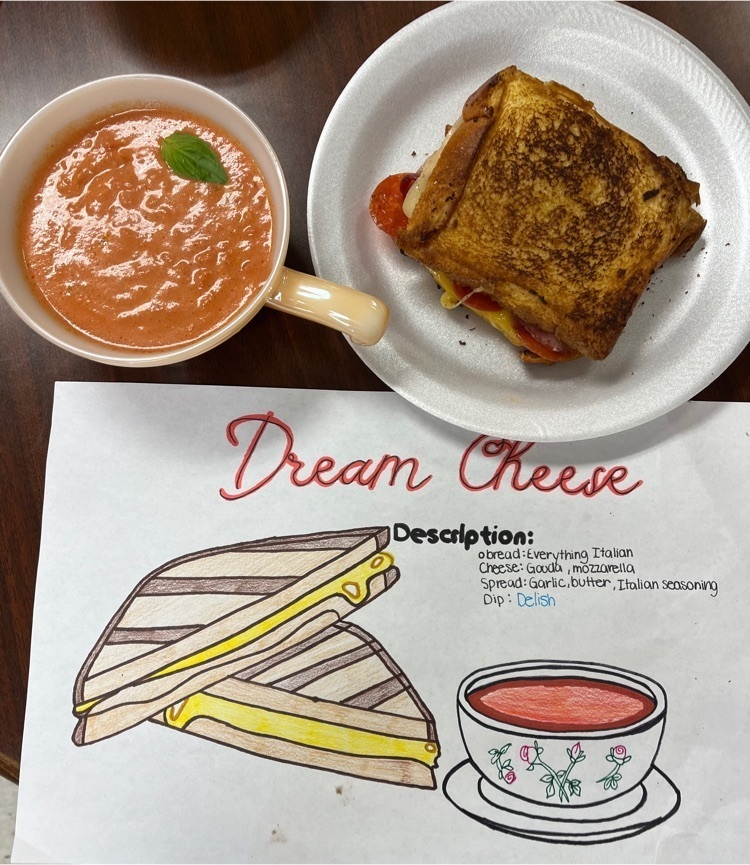 Dream Cheese
Description:
bread: Everything Italian
Cheese: Gouda, mozzarella
Spread: Garlic, butter, Italian seasoning
Dip: Delish